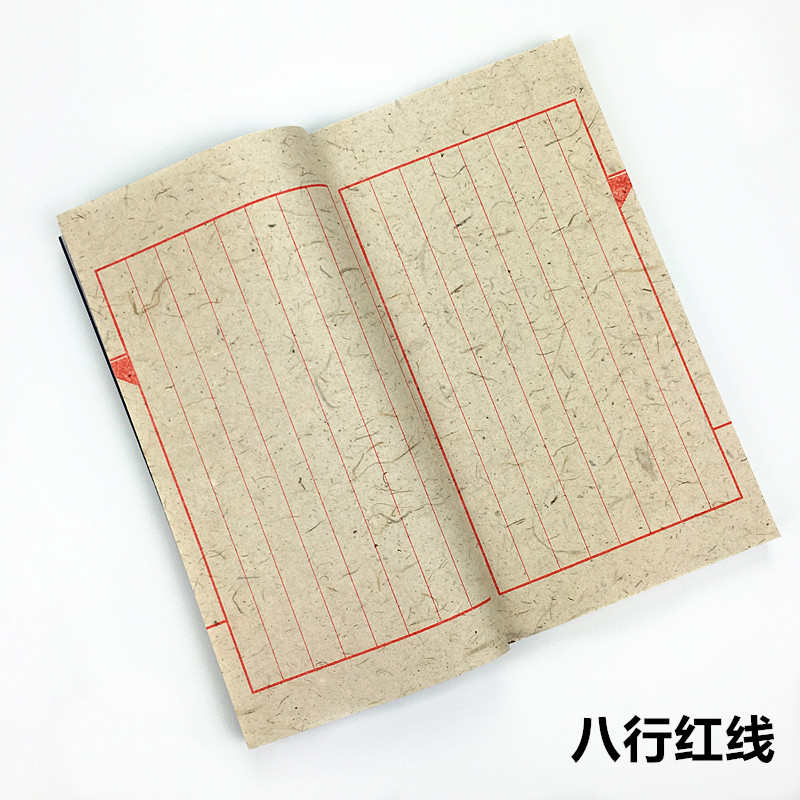 八行红线